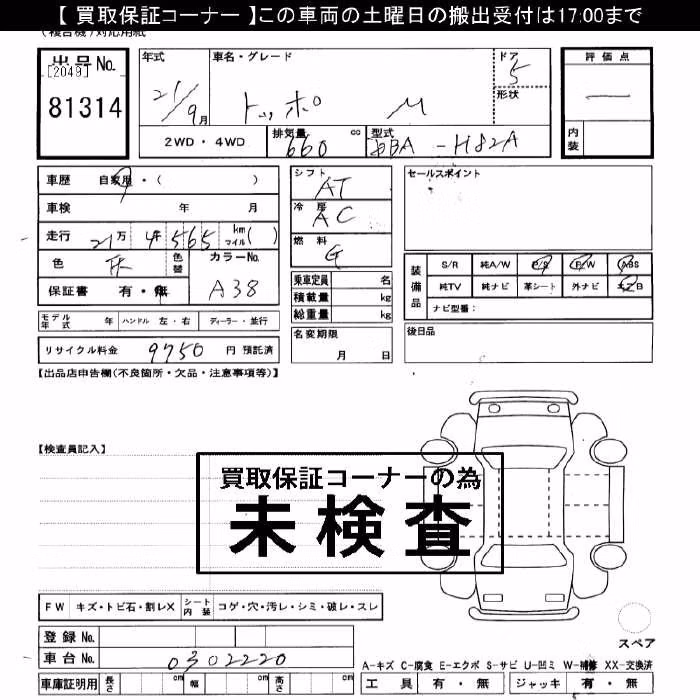 【 買取保証コーナー 】この車両の土曜日の搬出受付は17:00まで
(複合機)対応用紙
出品 No.
[2049]
81314
年式
21/9月
車名・グレード
トッポ M
ドア
5
形状
評価点
―
内装
2WD・4WD
排気量
660 cc
型式
DBA-H82A
車歴 自家用・( )
車検 年 月
走行 21万 4千565 km マイル( )
色
色替
カラーNo.
A38
保証書 有・無
シフト
AT
冷房
AC
燃料
G
乗車定員 名
積載量 kg
総重量 kg
セールスポイント
装備品
S/R 純A/W P/S P/W ABS
純TV 純ナビ 革シート 外ナビ エアB
ナビ型番:
モデル年式 年 ハンドル 左・右 ディーラー・並行
名変期限
月 日
後日品
リサイクル料金 9750 円 預託済
【出品店申告欄(不良箇所・欠品・注意事項等)】
【検査員記入】
買取保証コーナーの為
未検査
FW キズ・トビ石・割レX シート内装 コゲ・穴・汚レ・シミ・破レ・スレ
登録 No.
車台 No. 0302220
車庫証明用 長さ cm 幅 cm 高さ cm
スペア
A-キズ C-腐食 E-エクボ S-サビ U-凹ミ W-補修 XX-交換済
工具 有・無 ジャッキ 有・無